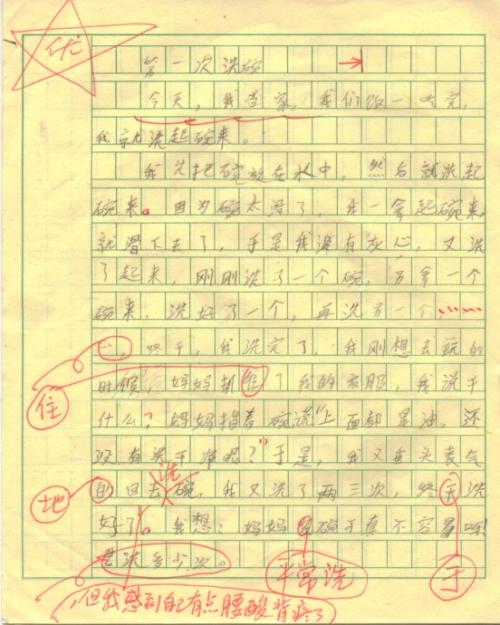 优
第一次洗碗
今天，我当家，我们饭一吃完，
我就洗起碗来。
我先把碗放在水中，然后就洗起
碗来。因为碗太滑了，我一拿起碗来，
就滑下去了，于是我没有灰心，又洗
了起来，刚刚洗了一个碗，另拿一个
碗来，洗好了一个，再洗另一个……
终于，我洗完了，我刚想去玩的
时候，妈妈抓住了我的衣服，我说干
什么？妈妈指着碗说“上面都是油，还
没有洗干净呢？”于是，我又垂头丧气
的回去洗碗，我又洗了两三次，终于洗
好了。我想：妈妈碗可真不容易呀！
要洗多少次。
住
地
于
平常洗
但我感到自己有点腰酸背疼了